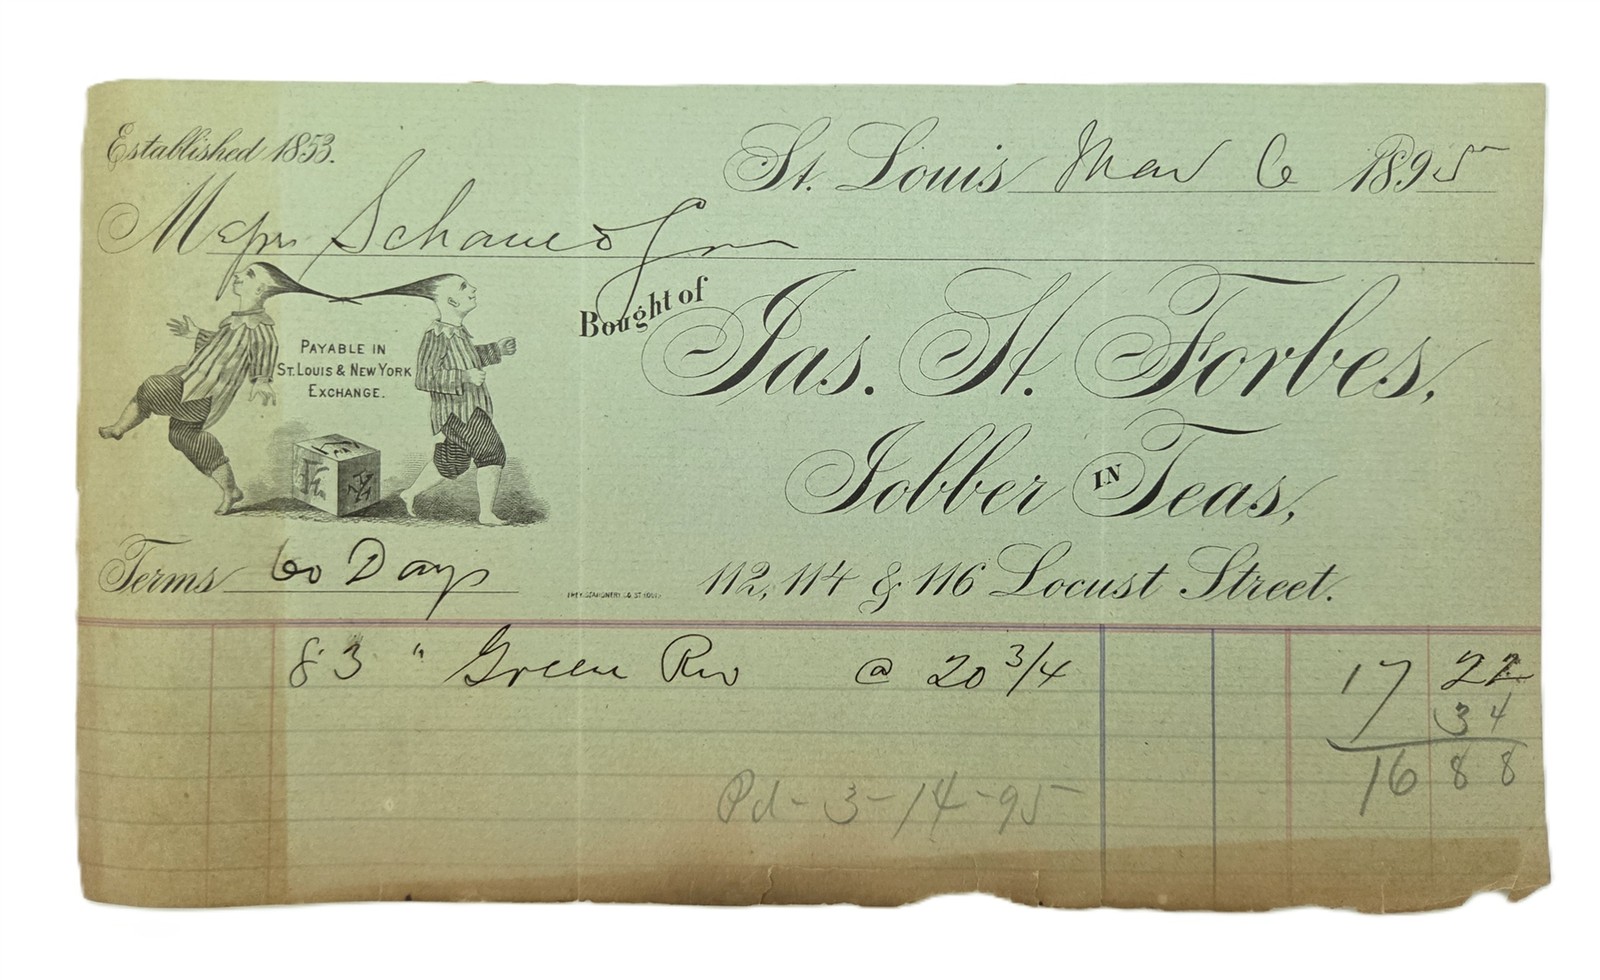 Established 1853.
St. Louis Mar 6 1895
Messrs
Bought of
Jas. H. Forbes,
PAYABLE IN
ST. LOUIS & NEW YORK
EXCHANGE.
Jobber IN Teas,
Terms 60 Days
112, 114 & 116 Locust Street.
83 " Green Rio @ 20 3/4 17 22
34
16 88
Pd - 3 - 14 - 95